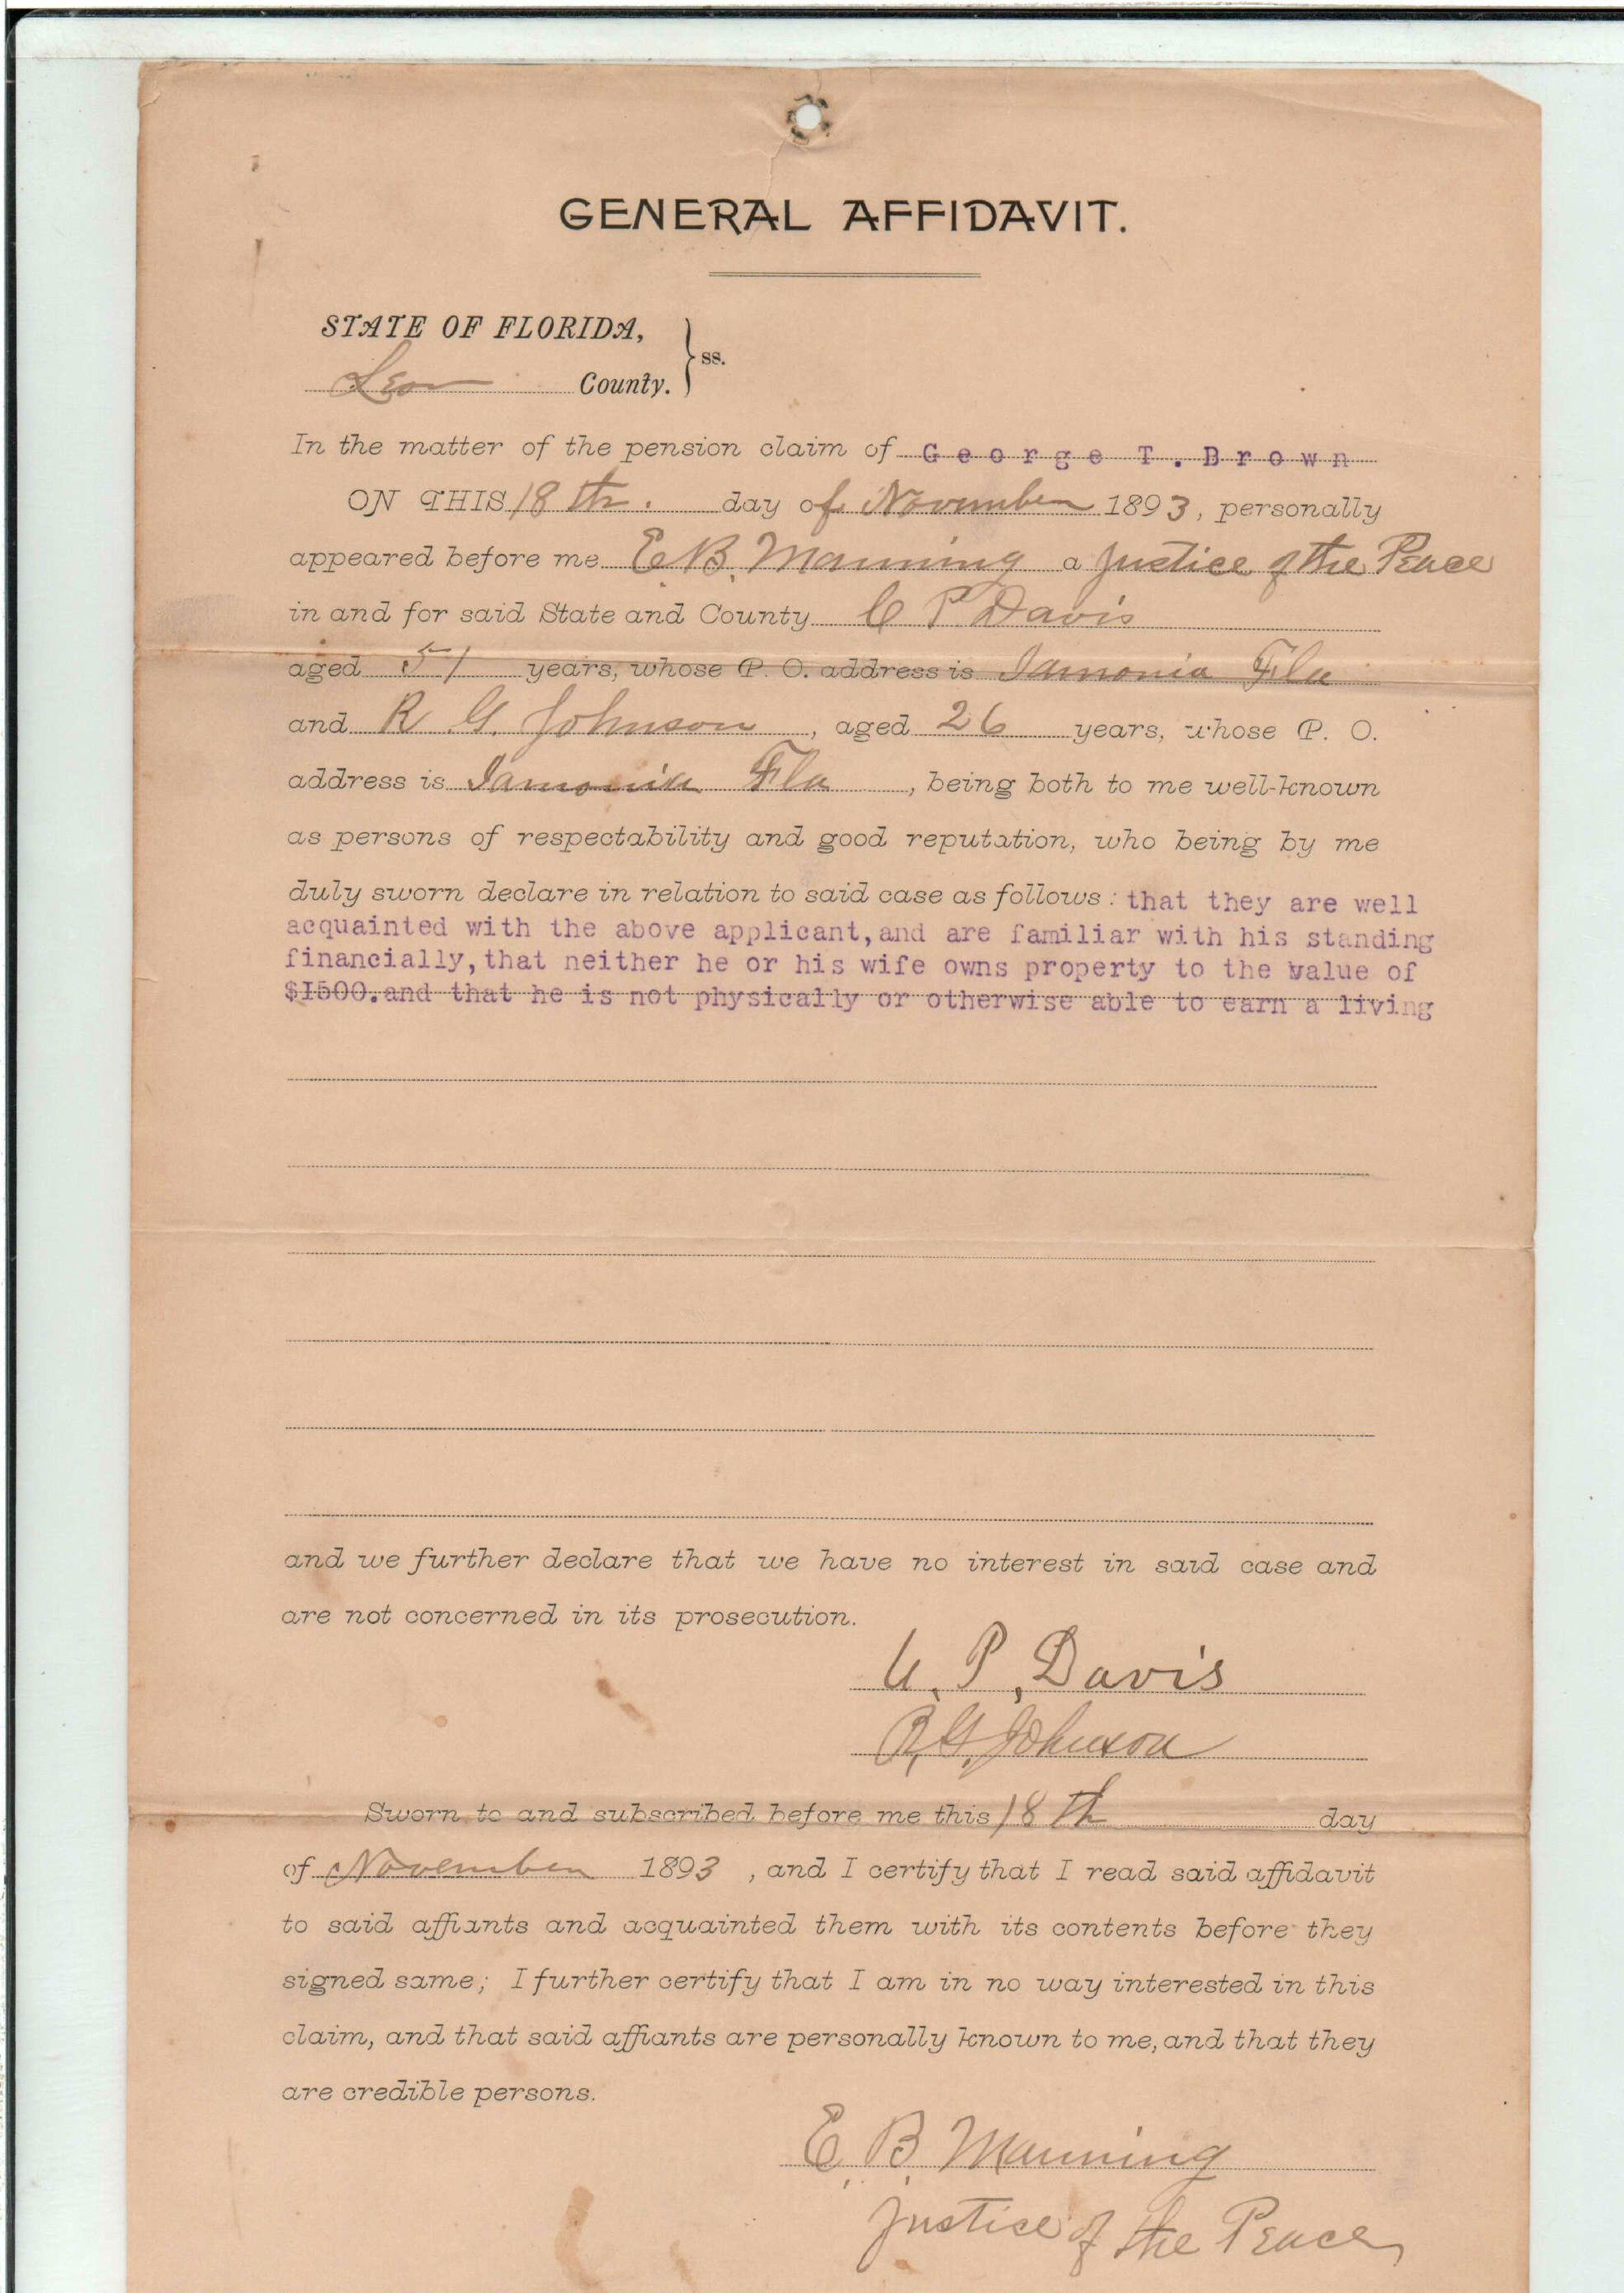 GENERAL AFFIDAVIT.
STATE OF FLORIDA,
Leon County. } ss.
In the matter of the pension claim of George T. Brown
ON THIS 18th. day of November 1893, personally
appeared before me E. B. Manning a Justice of the Peace
in and for said State and County C P Davis
aged 51 years, whose P. O. address is Iamonia Fla
and R. G. Johnson, aged 26 years, whose P. O.
address is Iamonia Fla, being both to me well-known
as persons of respectability and good reputation, who being by me
duly sworn declare in relation to said case as follows: that they are well
acquainted with the above applicant,and are familiar with his standing
financially,that neither he or his wife owns property to the value of
$I500.and that he is not physically or otherwise able to earn a living
and we further declare that we have no interest in said case and
are not concerned in its prosecution.
C. P. Davis
R. G. Johnson
Sworn to and subscribed before me this 18th day
of November 1893, and I certify that I read said affidavit
to said affiants and acquainted them with its contents before they
signed same; I further certify that I am in no way interested in this
claim, and that said affiants are personally known to me, and that they
are credible persons.
E. B. Manning
Justice of the Peace